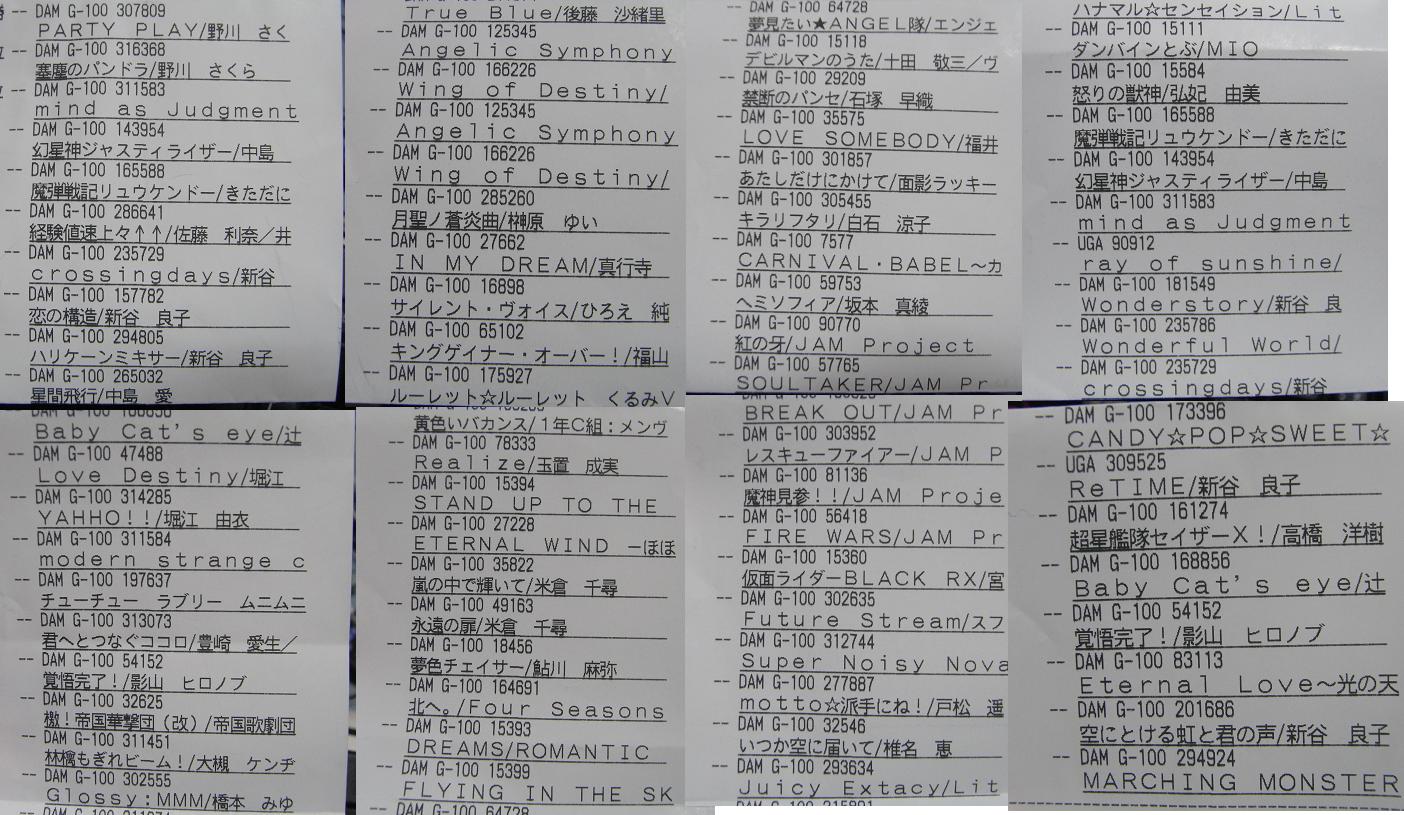 -- DAM G-100 307809
PARTY PLAY/野川 さく
-- DAM G-100 316368
塞塵のパンドラ/野川 さくら
-- DAM G-100 311583
mind as Judgment
-- DAM G-100 143954
幻星神ジャスティライザー/中島
-- DAM G-100 165588
魔弾戦記リュウケンドー/きただに
-- DAM G-100 286641
経験値速上々↑↑/佐藤 利奈／井
-- DAM G-100 235729
crossingdays/新谷
-- DAM G-100 157782
恋の構造/新谷 良子
-- DAM G-100 294805
ハリケーンミキサー/新谷 良子
-- DAM G-100 265032
星間飛行/中島 愛
True Blue/後藤 沙緒里
-- DAM G-100 125345
Angelic Symphony
-- DAM G-100 166226
Wing of Destiny/
-- DAM G-100 125345
Angelic Symphony
-- DAM G-100 166226
Wing of Destiny/
-- DAM G-100 285260
月聖ノ蒼炎曲/榊原 ゆい
-- DAM G-100 27662
IN MY DREAM/真行寺
-- DAM G-100 16898
サイレント・ヴォイス/ひろえ 純
-- DAM G-100 65102
キングゲイナー・オーバー！/福山
-- DAM G-100 175927
ルーレット☆ルーレット くるみV
-- DAM G-100 64728
夢見たい★ANGEL隊/エンジェ
-- DAM G-100 15118
デビルマンのうた/十田 敬三／ヴ
-- DAM G-100 29209
禁断のパンセ/石塚 早織
-- DAM G-100 35575
LOVE SOMEBODY/福井
-- DAM G-100 301857
あたしだけにかけて/面影ラッキー
-- DAM G-100 305455
キラリフタリ/白石 涼子
-- DAM G-100 7577
CARNIVAL・BABEL～カ
-- DAM G-100 59753
ヘミソフィア/坂本 真綾
-- DAM G-100 90770
紅の牙/JAM Project
-- DAM G-100 57765
SOULTAKER/JAM Pr
ハナマル☆センセイション/Lit
-- DAM G-100 15111
ダンバインとぶ/MIO
-- DAM G-100 15584
怒りの獣神/弘妃 由美
-- DAM G-100 165588
魔弾戦記リュウケンドー/きただに
-- DAM G-100 143954
幻星神ジャスティライザー/中島
-- DAM G-100 311583
mind as Judgment
-- UGA 90912
ray of sunshine/
-- DAM G-100 181549
Wonderstory/新谷 良
-- DAM G-100 235786
Wonderful World/
-- DAM G-100 235729
crossingdays/新谷
Baby Cat's eye/辻
-- DAM G-100 47488
Love Destiny/堀江
-- DAM G-100 314285
YAHHO！！/堀江 由衣
-- DAM G-100 311584
modern strange c
-- DAM G-100 197637
チューチュー ラブリー ムニムニ
-- DAM G-100 313073
君へとつなぐココロ/豊崎 愛生／
-- DAM G-100 54152
覚悟完了！/影山 ヒロノブ
-- DAM G-100 32625
檄！帝国華撃団（改）/帝国歌劇団
-- DAM G-100 311451
林檎もぎれビーム！/大槻 ケンヂ
-- DAM G-100 302555
Glossy:MMM/橋本 みゆ
黄色いバカンス/１年C組：メンヴ
-- DAM G-100 78333
Realize/玉置 成実
-- DAM G-100 15394
STAND UP TO THE
-- DAM G-100 27228
ETERNAL WIND －ほほ
-- DAM G-100 35822
嵐の中で輝いて/米倉 千尋
-- DAM G-100 49163
永遠の扉/米倉 千尋
-- DAM G-100 18456
夢色チェイサー/鮎川 麻弥
-- DAM G-100 164691
北へ。/Four Seasons
-- DAM G-100 15393
DREAMS/ROMANTIC
-- DAM G-100 15399
FLYING IN THE SK
-- DAM G-100 64728
BREAK OUT/JAM Pr
-- DAM G-100 303952
レスキューファイアー/JAM P
-- DAM G-100 81136
魔神見参！！/JAM Proje
-- DAM G-100 56418
FIRE WARS/JAM Pr
-- DAM G-100 15360
仮面ライダーBLACK RX/宮
-- DAM G-100 302635
Future Stream/スフ
-- DAM G-100 312744
Super Noisy Nova
-- DAM G-100 277887
motto☆派手にね！/戸松 遥
-- DAM G-100 32546
いつか空に届いて/椎名 恵
-- DAM G-100 293634
Juicy Extacy/Lit
-- DAM G-100 173396
CANDY☆POP☆SWEET☆
-- UGA 309525
ReTIME/新谷 良子
-- DAM G-100 161274
超星艦隊セイザーX！/高橋 洋樹
-- DAM G-100 168856
Baby Cat's eye/辻
-- DAM G-100 54152
覚悟完了！/影山 ヒロノブ
-- DAM G-100 83113
Eternal Love～光の天
-- DAM G-100 201686
空にとける虹と君の声/新谷 良子
-- DAM G-100 294924
MARCHING MONSTER